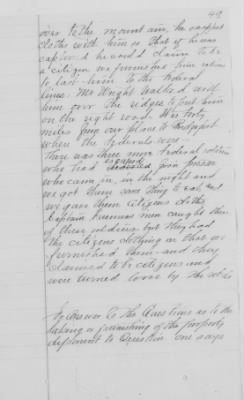 48
over to the mountain he
clothes with him so that if he was
captured he would claim to be
a citizen we furnished him
to him to the Federal
lines. Mr Wright walked with
him over the ridges to put him
on the right road. It is forty
miles from our place to
when the Federals were.
There was three more Federal soldiers
who had escaped from prison
who came in, in the night and
we got them some thing to eat and
we gave them Citizens clothes
Captain men caught them
of these but they had
the citizens clothing on that we
furnished them and they
claimed to be citizens and
were turned loose by the
In Answer to the Questions as to the
taking or furnishing of the property
deponent to Question one says